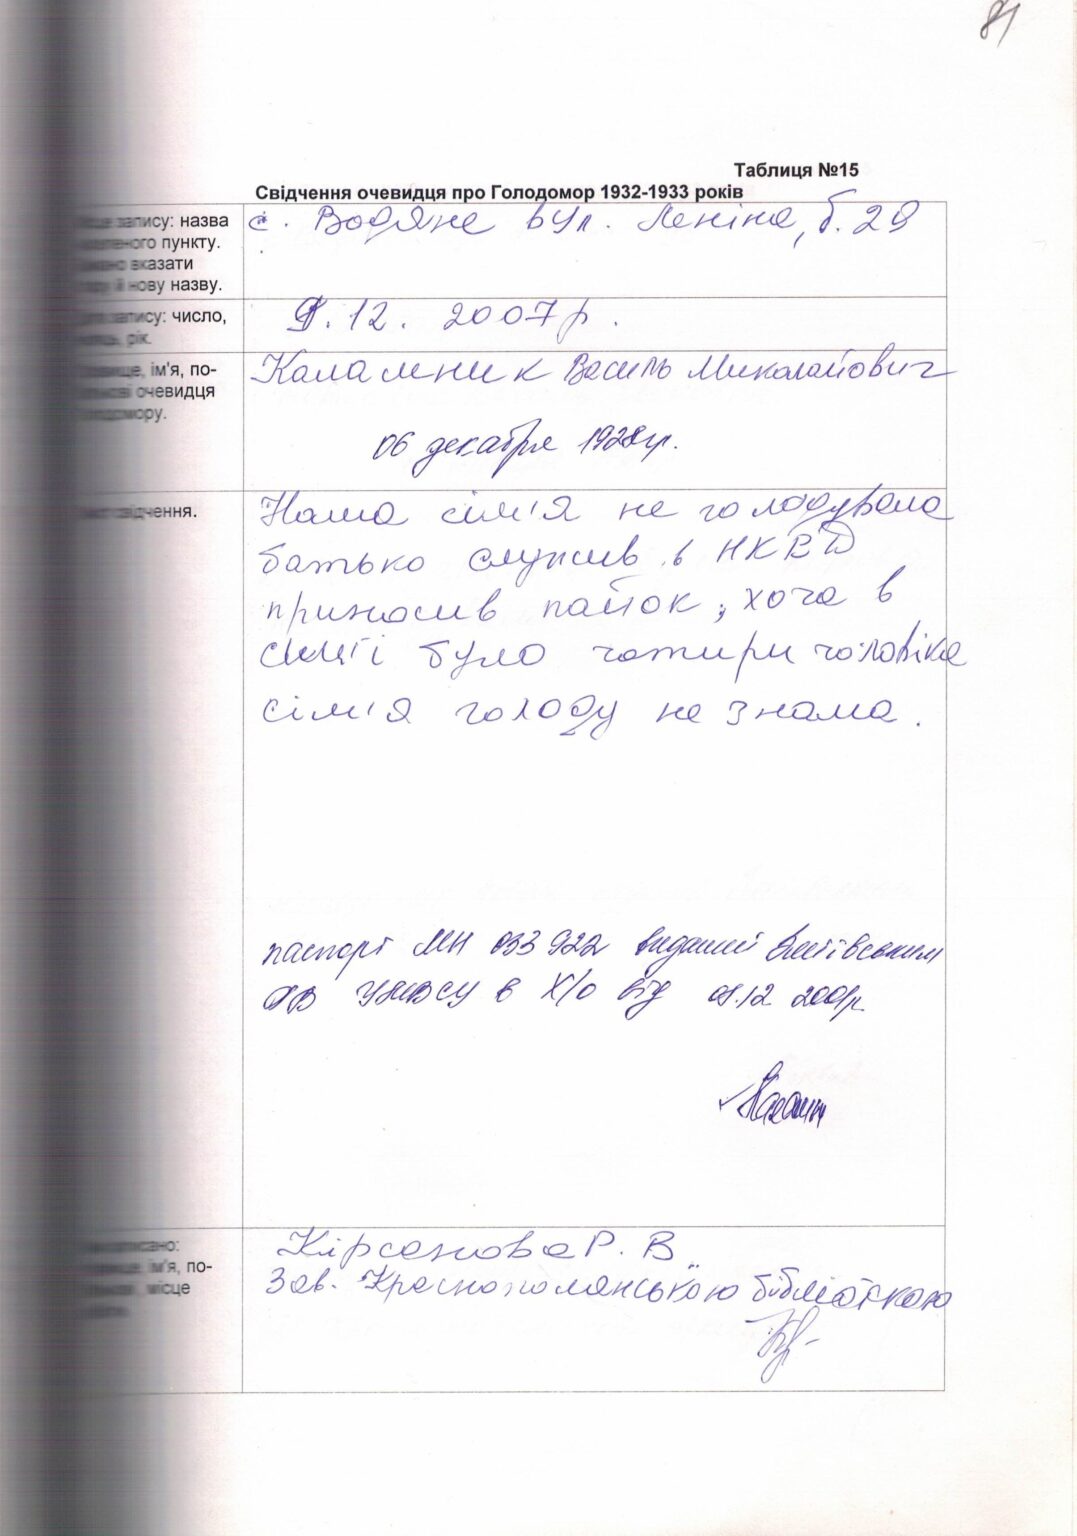 81
Таблиця №15
Свідчення очевидця про Голодомор 1932-1933 років
запису: назва
пункту.
вказати
й нову назву.
с. Водяне вул. Леніна, б. 29
запису: число,
рік.
9.12. 2007р.
ім'я, по-
очевидця
Голодомору.
Каламник Василь Миколайович
06 декабря 1928гр.
свідчення.
Наша сім'я не голодувала
батько служив в НКВД
приносив пайок, хоча в
сім'ї було чотири чоловіка
сім'я голоду не знала.
паспорт МН 033922 виданий
РВ УМВСУ в Х/о від 01.12 2001р.
ім'я, по-
місце
Кірсанова Р. В.
Зав. Краснополянською бібліотекою